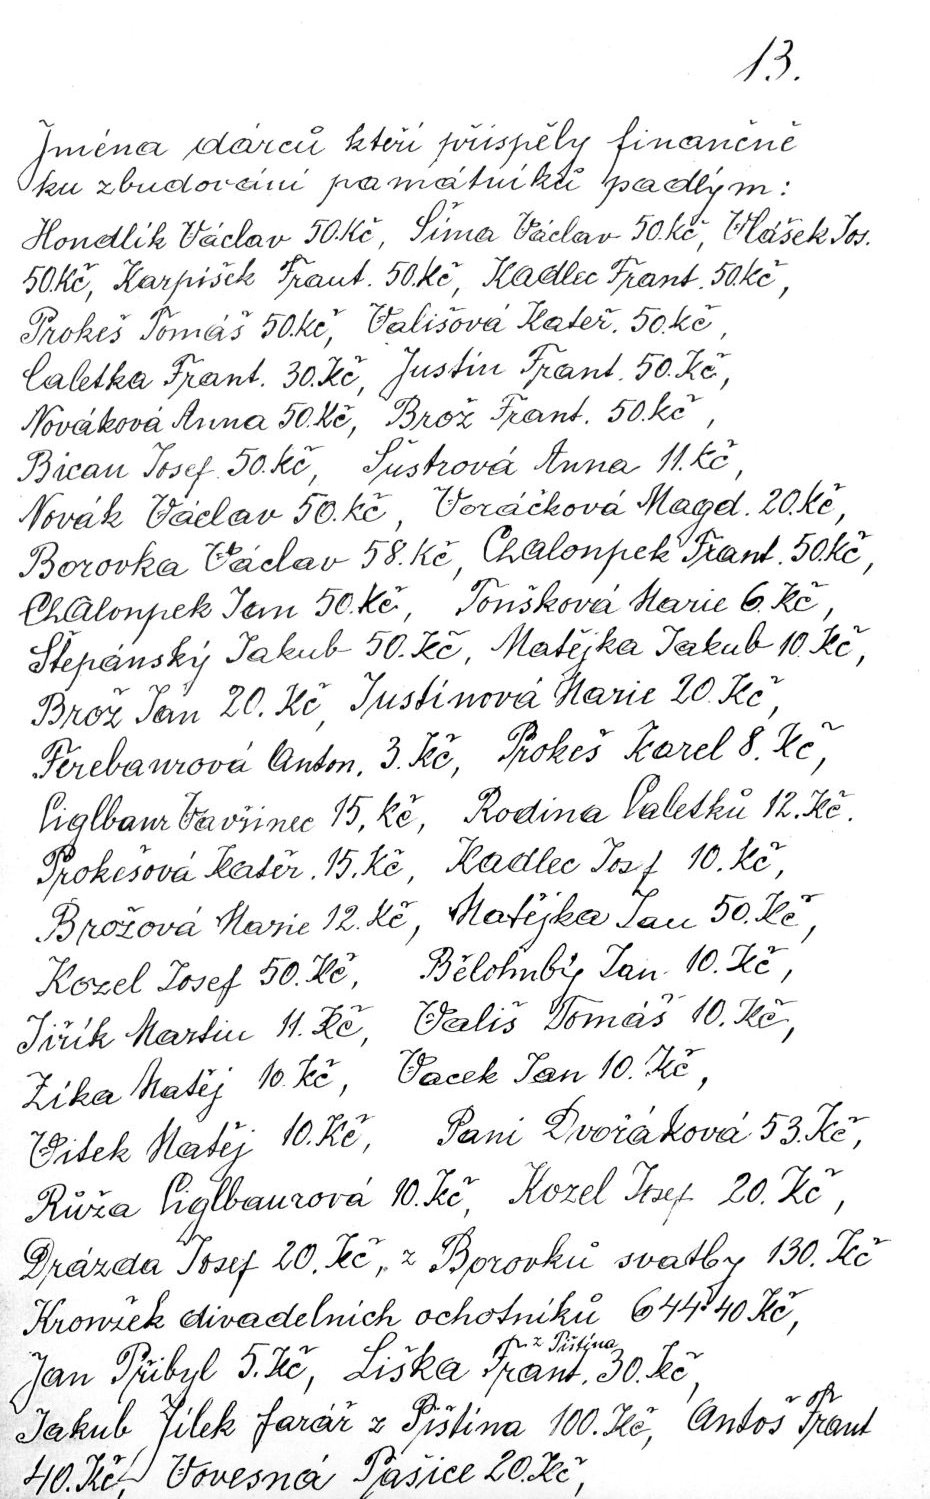 13.
Jména dárců kteří přispěly finančně
ku zbudování památníků padlým:
Hondlík Václav 50.Kč, Šíma Václav 50.Kč, Vlášek Jos.
50.Kč, Karpíšek Frant. 50.Kč, Kadlec Frant. 50.Kč,
Prokeš Tomáš 50.Kč, Vališová Kateř. 50.Kč,
Caletka Frant. 30.Kč, Justin Frant. 50.Kč,
Nováková Anna 50.Kč, Brož Frant. 50.Kč,
Bican Josef 50.Kč, Šustrová Anna 11.Kč,
Novák Václav 50.Kč, Voráčková Magd. 20.Kč,
Borovka Václav 58.Kč, Chalonpek Frant. 50.Kč,
Chalonpek Jan 50.Kč, Toušková Marie 6.Kč,
Štepánský Jakub 50.Kč, Matějka Jakub 10.Kč,
Brož Jan 20.Kč, Justinová Marie 20.Kč,
Ferebaurová Anton. 3.Kč, Prokeš Karel 8.Kč,
Ciglbaur Vavřinec 15.Kč, Rodina Caletků 12.Kč.
Prokešová Kateř. 15.Kč, Kadlec Josf 10.Kč,
Brožová Marie 12.Kč, Matějka Jan 50.Kč,
Kozel Josef 50.Kč, Jan 10.Kč,
Jiřík Martin 11.Kč, Vališ Tomáš 10.Kč,
Zíka Matěj 10.Kč, Vacek Jan 10.Kč,
Vitek Matěj 10.Kč, Pani Dvořáková 53.Kč,
Růža Ciglbaurová 10.Kč, Kozel Josef 20.Kč,
Drázda Josef 20.Kč, z Borovků svatby 130.Kč
Kroužek divadelních ochotníků 644·40 Kč,
Jan Přibyl 5.Kč, Liška Frant. z Pištína 30.Kč,
Jakub Jílek farář z Pištína 100.Kč, Antoš Frant
40.Kč, Vovesná Pašice 20.Kč,